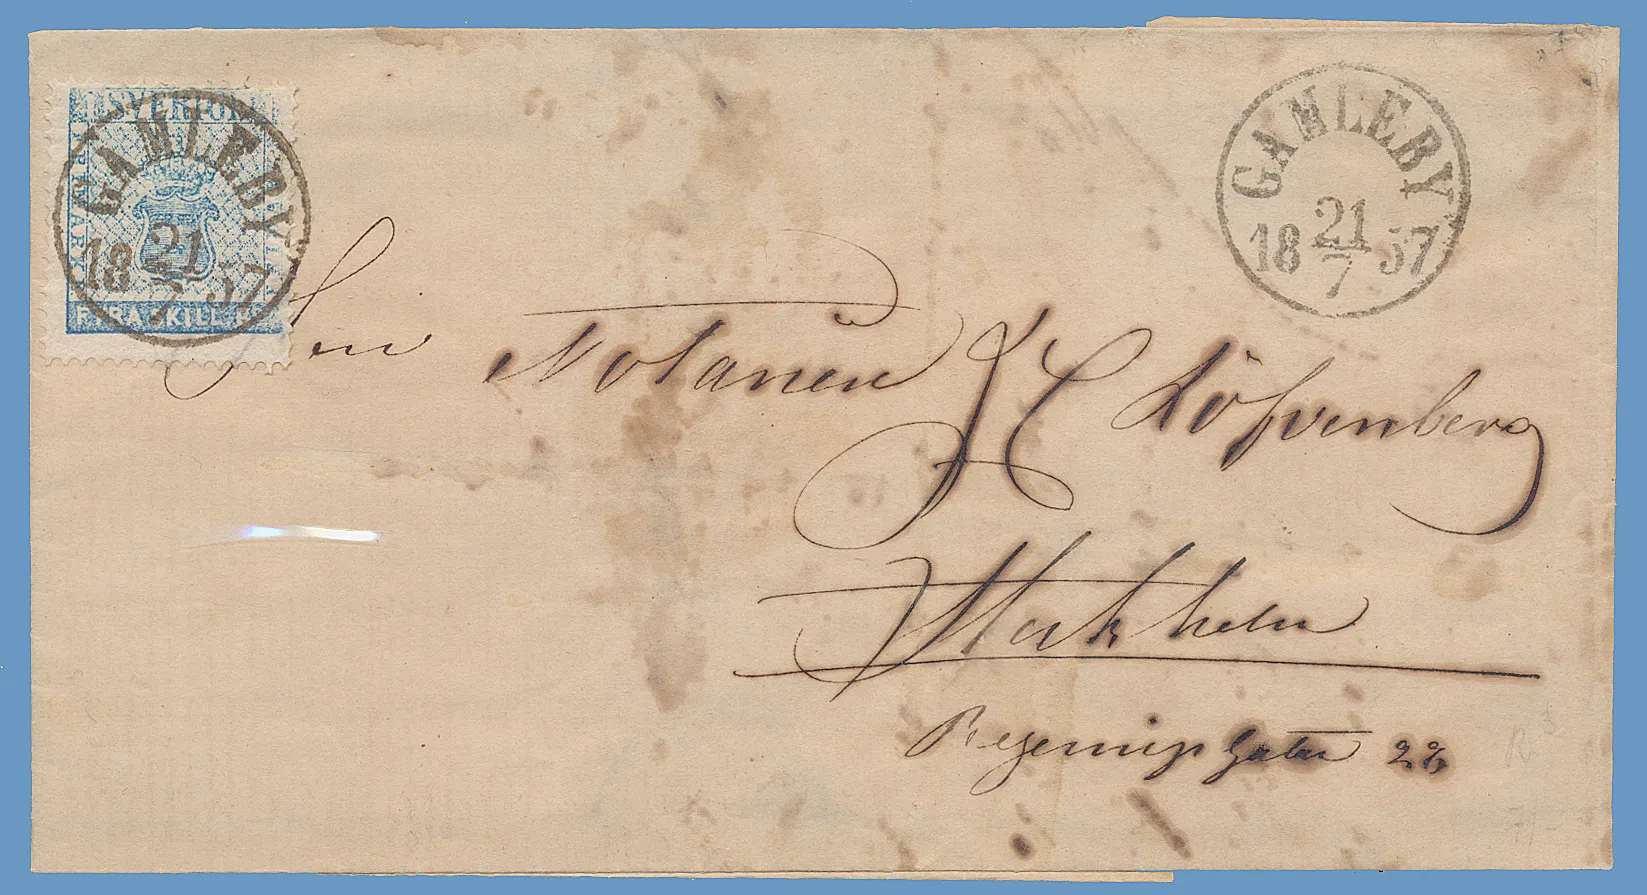 SVERIGE
FYRA SKILL. B
GAMLEBY
18 21/7 57
GAMLEBY
18 21/7 57
Herr
Notarien J C Löfvenberg
Stockholm
Regerings Gatan
R 3